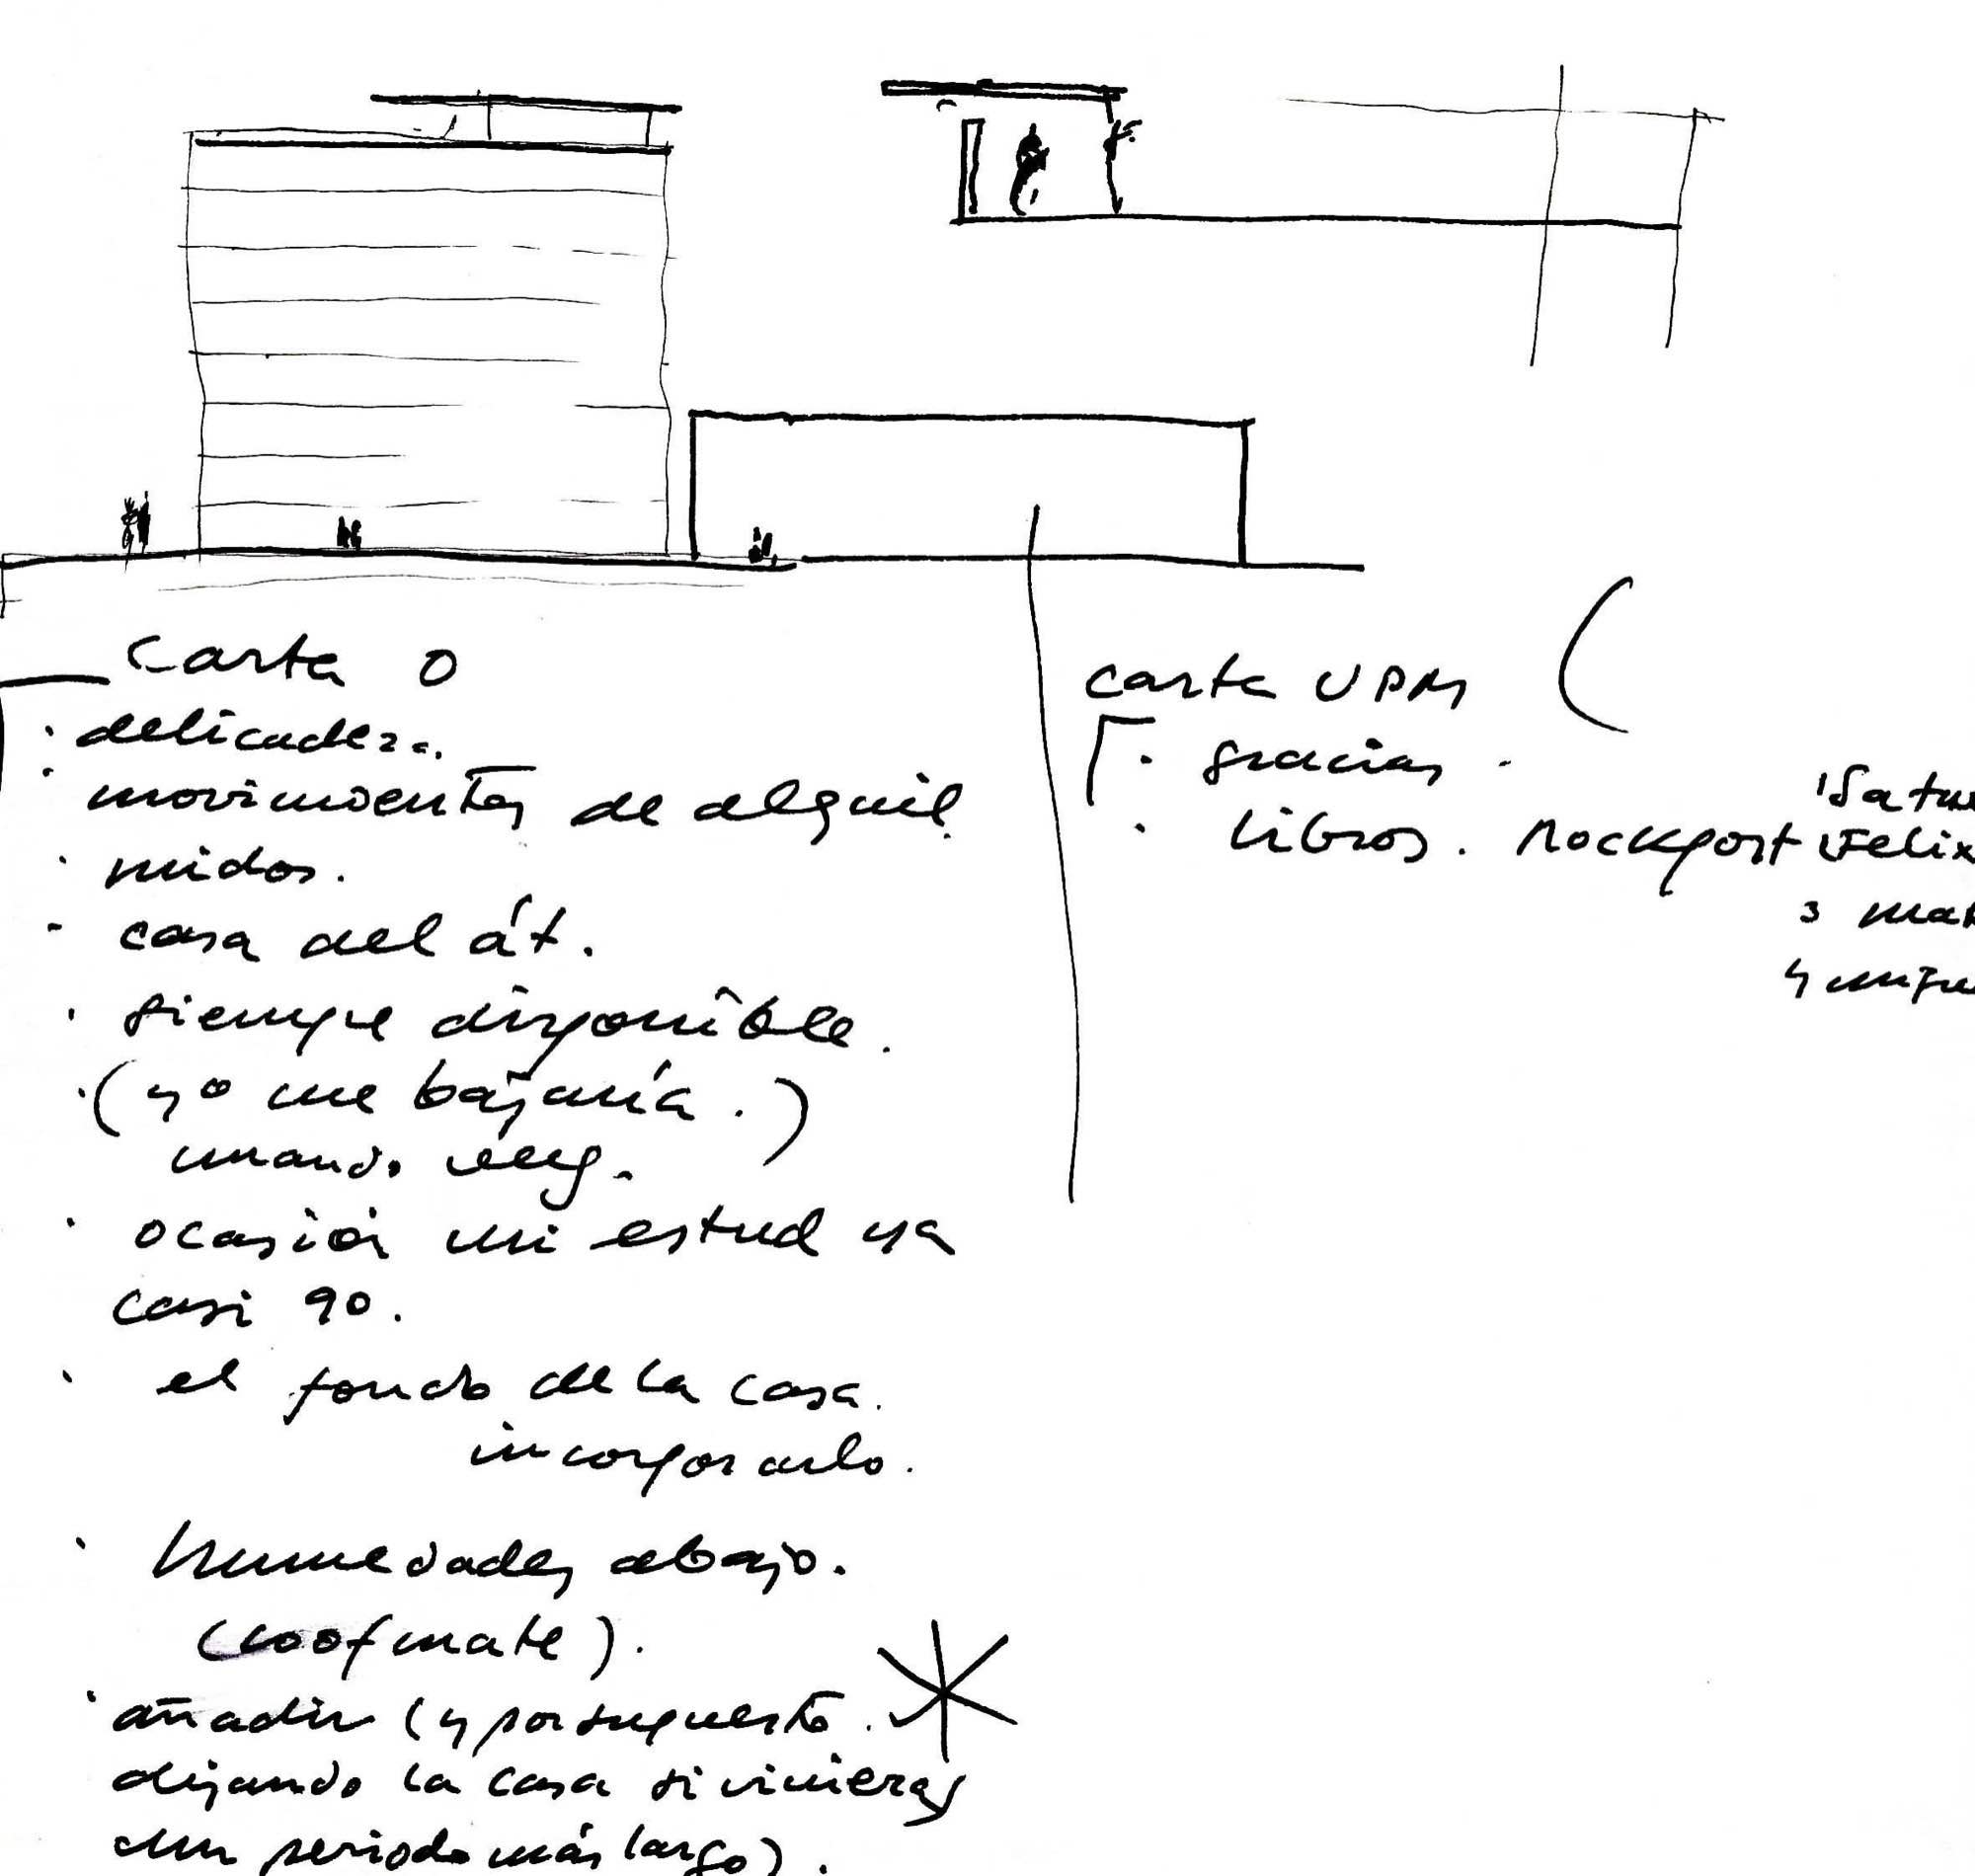 carta O
· delicadeza.
· movimientos de alquil.
· ruidos.
- casa del át.
· siempre disponible.
· (yo me bajaría.)
cuando veng.
· ocasión mi estud ya
casi 90.
· el fondo de la casa.
incorporarlo.
· humedades abajo.
(roofmate).
· añadir (y por supuesto.
dejando la casa si vinieras
un periodo más largo).
carta UPM
· gracias.
· Libros. Rockport
1 Satu
2 Felix
3 ma
4